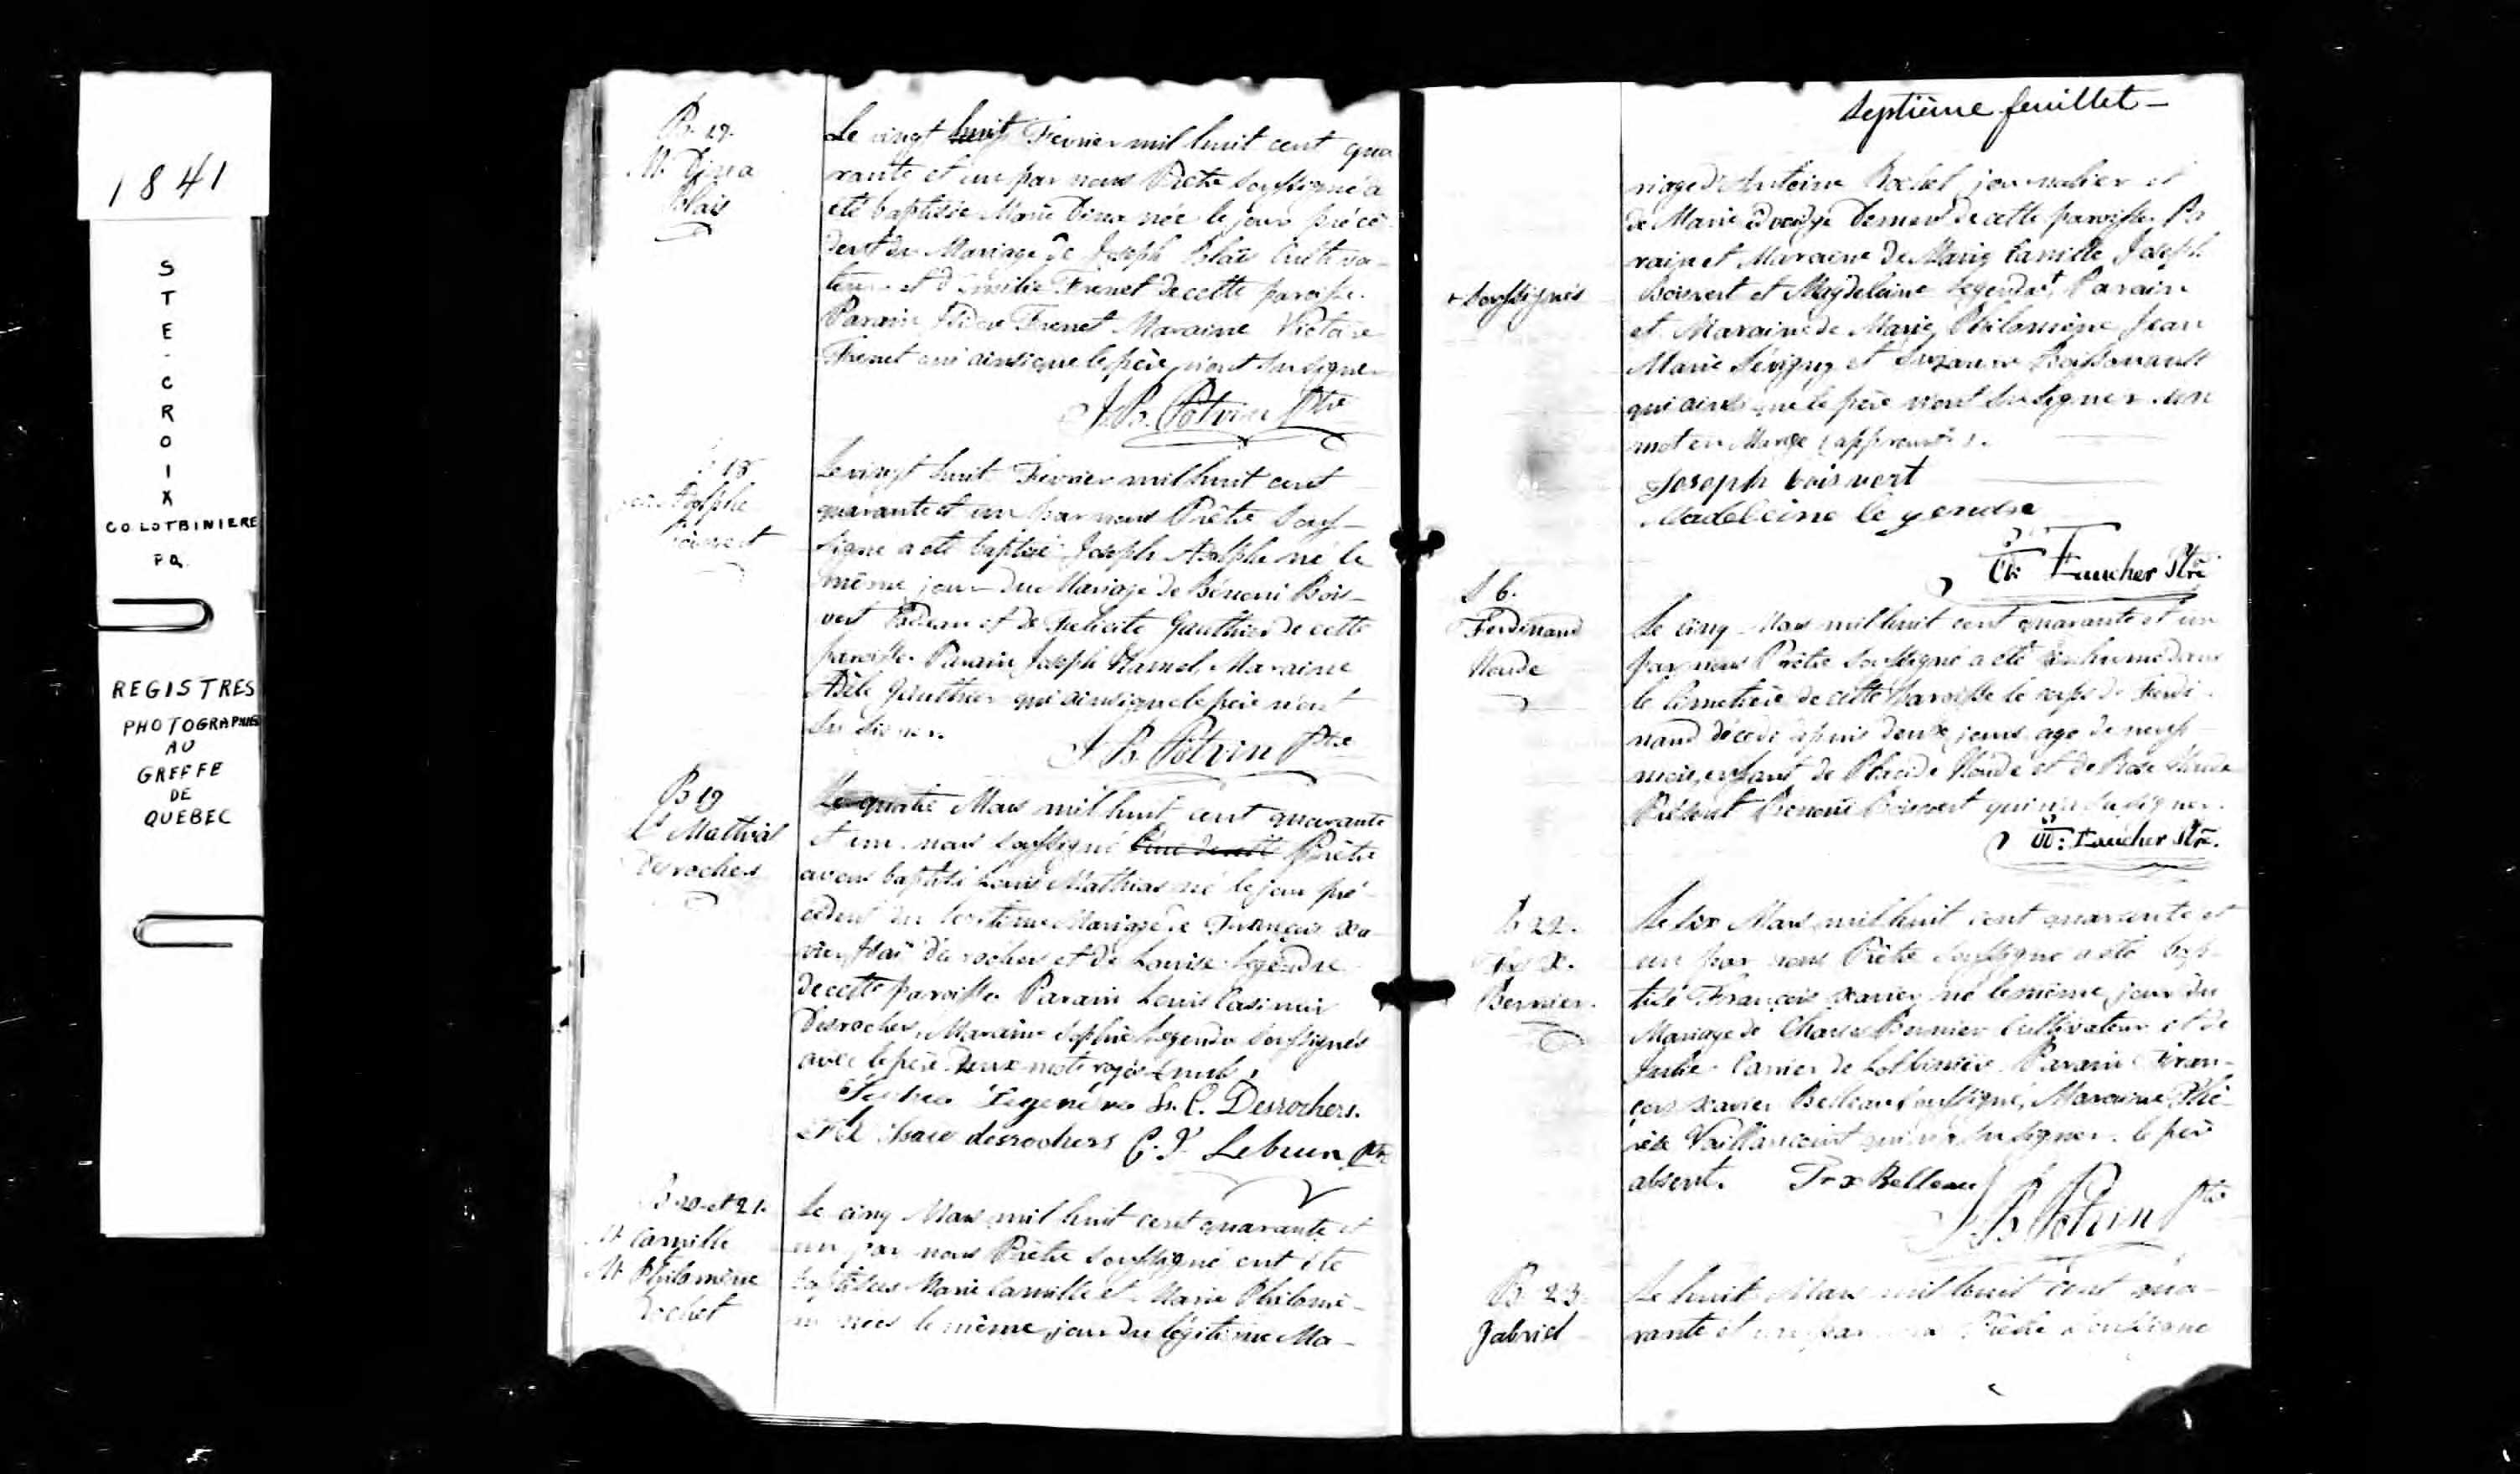 1841
STE-CROIX
CO. LOTBINIERE
P.Q.
REGISTRES
PHOTOGRAPHIES
AU
GREFFE
DE
QUEBEC
B. 17.
M. Dina
Blais
Le vingt huit Fevrier mil huit cent qua
rante et un par nous Prêtre Soussigné a
été baptisée Marie Dina née le jour précé-
dent du Mariage de Joseph Blais Cultiva-
teur et d'Emilie Frenet de cette paroisse.
Parain Frenet Maraine Victoire
Frenet qui ainsi que le père n'ont su signer
J. B. Potvin Ptre
18
Adolphe
Boisvert
Le vingt huit Fevrier mil huit cent
quarante et un par nous Prêtre Sous-
signé a été baptisé Joseph Adolphe né le
même jour du Mariage de Bénoni Bois-
vert et de Felicite Gauthier de cette
paroisse. Parain Joseph Hamel, Maraine
Adèle Gauthier qui ainsi que le père n'ont
su signer.
J. B. Potvin Ptre
B 19
Ls Mathias
Desrochers
Le quatre Mars mil huit cent quarante
et un nous soussigné Prêtre
avons baptisé Louis Mathias né le jour pré-
cédent du légitime Mariage de François Xa-
vier Desrochers et de Louise Legendre
de cette paroisse Parain Louis Casimir
Desrochers, Maraine Sophie Legendre Soussignés
avec le père. Deux mots rayés nuls.
Legendre Ls. C. Desrochers.
desrochers Lebrun Ptre
B 20 et 21.
M Camille
M Philomène
Rochet
Le cinq Mars mil huit cent quarante et
un par nous Prêtre soussigné ont été
baptisées Marie Camille et Marie Philomè-
ne nées le même jour du légitime Ma-
Septième feuillet —
riage d'Antoine Rochet journalier et
de Marie Bernard de cette paroisse. Pa
rain et Maraine de Marie Camille Joseph
Boisvert et Magdeleine Legendre + Parain
+ Soussignés
et Maraine de Marie Philomène Jean
Marie Sévigny et Suzanne Boissonault
qui ainsi que le père n'ont su signer. un
mot en Marge approuvé.
Joseph boisvert
Madeleine le gendre
Faucher Ptre
S 6.
Ferdinand
Houde
Le cinq Mars mil huit cent quarante et un
par nous Prêtre Soussigné a été inhumé dans
le Cimetière de cette Paroisse le corps de Ferdi-
nand décédé depuis deux jours age de neuf
mois, enfant de Placide Houde et de Rose Houde
Présent Benoni Boisvert qui n'a su signer.
Faucher Ptre.
B 22.
Frs X.
Bernier.
Le six Mars mil huit cent quarante et
un par nous Prêtre Soussigné a été bap-
tisé François Xavier né le même jour du
Mariage de Charles Bernier Cultivateur et de
Julie de Lotbinière Parain Fran-
çois Xavier Belleau Soussigné, Maraine Thé-
rèse Vaillancourt qui n'a su signer. le père
absent. Frs x Belleau
J. B. Potvin Ptre
B. 23
Gabriel
Le huit Mars mil huit cent qua-
rante et un par nous Prêtre Soussigné